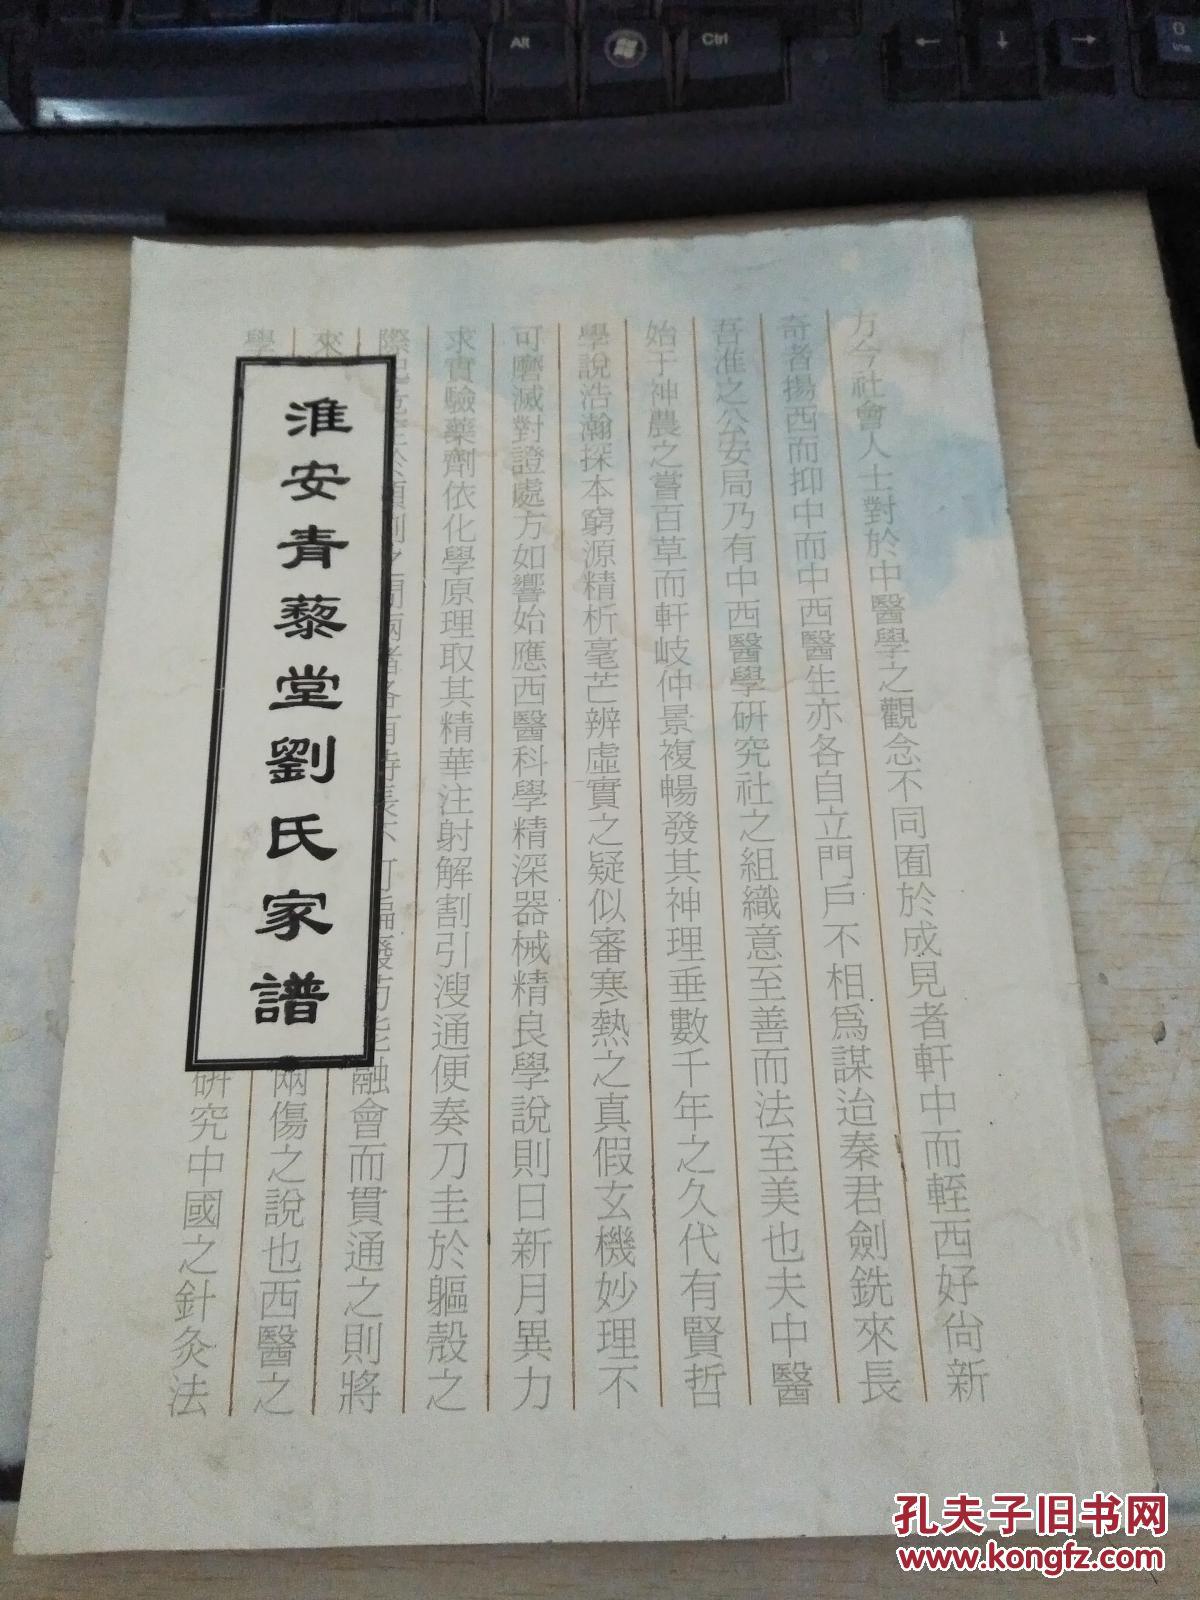 Alt
Ctrl
←
↓
→
0
Ins
淮安青藜堂劉氏家譜
方今社會人士對於中醫學之觀念不同囿於成見者軒中而輊西好尙新
奇者揚西而抑中而中西醫生亦各自立門戶不相爲謀迨秦君劍銑來長
吾淮之公安局乃有中西醫學硏究社之組織意至善而法至美也夫中醫
始于神農之嘗百草而軒岐仲景複暢發其神理垂數千年之久代有賢哲
學說浩瀚探本窮源精析毫芒辨虛實之疑似審寒熱之真假玄機妙理不
可磨滅對證處方如響始應西醫科學精深器械精良學說則日新月異力
求實驗藥劑依化學原理取其精華注射解割引溲通便奏刀圭於軀殼之
際
融會而貫通之則將
來
兩傷之說也西醫之
學
硏究中國之針灸法
孔夫子旧书网
www.kongfz.com